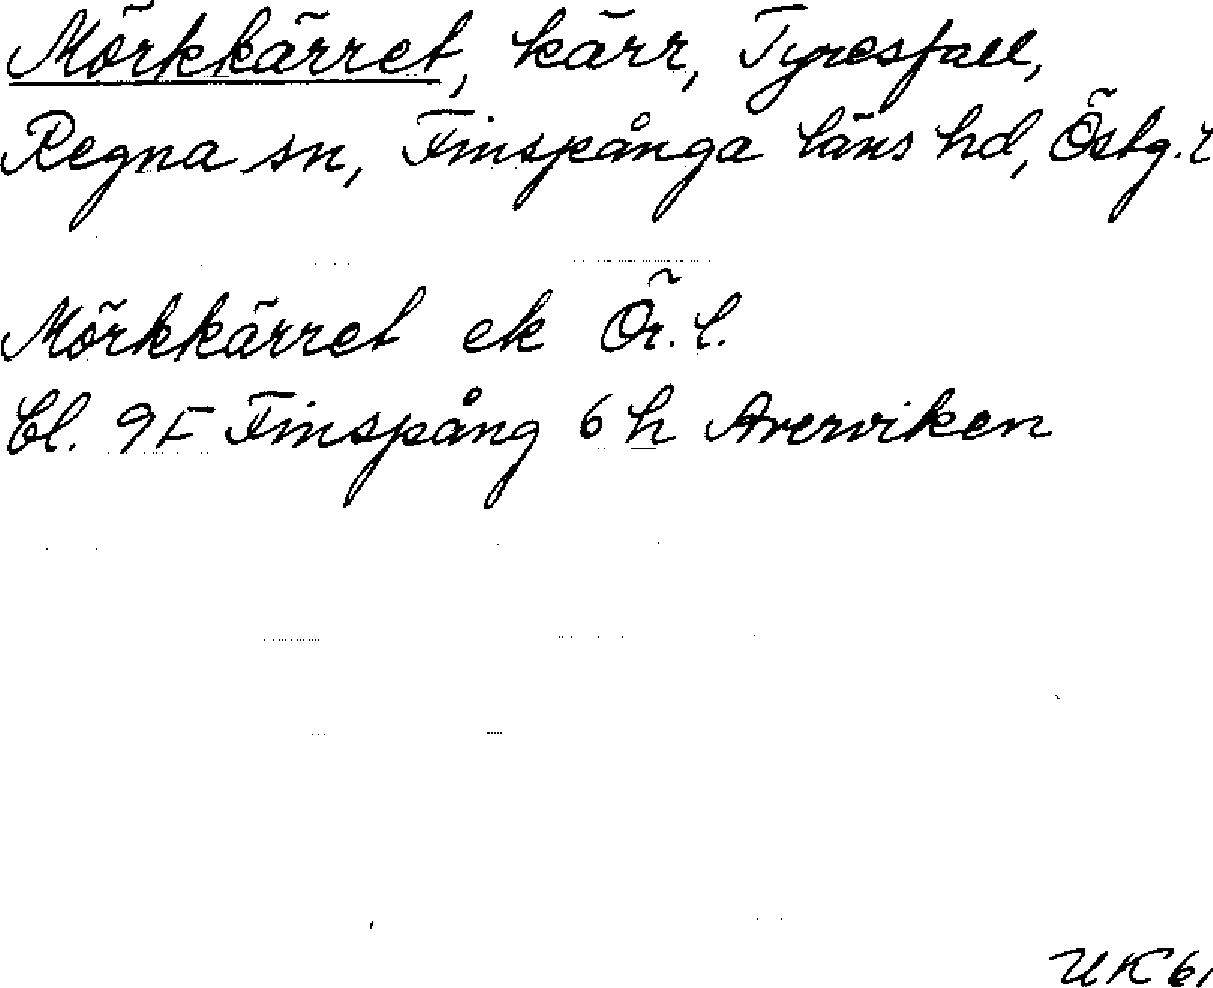 Mörkkärret, kärr, Tyresfall,
Regna sn, Finspånga läns hd, Östg.l
Mörkkärret ek Ör. l.
bl. 9F Finspång 6 h Averviken
UK 61